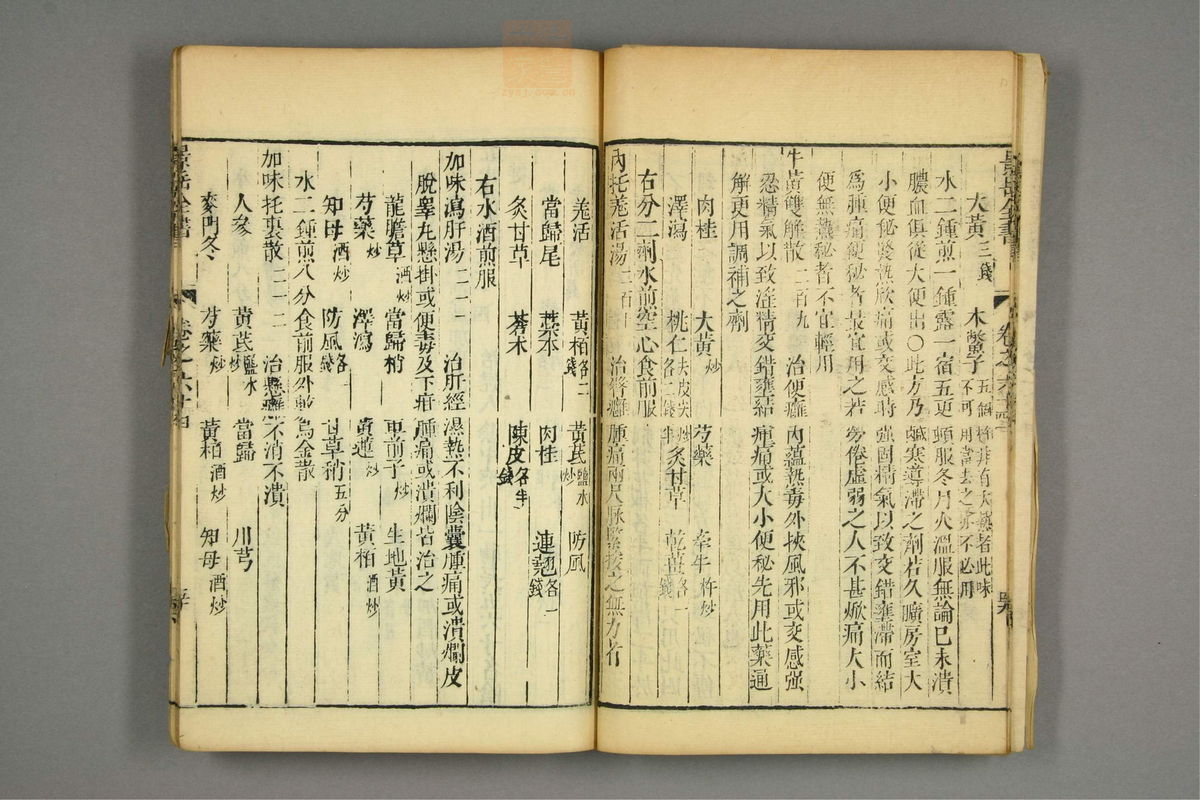 景岳全書
卷之六十四
大黃三錢 木鱉子五個 不可用當去之亦不必用
水二鍾煎一鍾露一宿五更頓服冬月火溫服無論已未潰
膿血俱從大便出○此方乃鹹寒導滯之劑若久曠房室大
小便秘發熱焮痛或交感時強固精氣以致交錯壅滯而結
為腫痛便秘者最宜用之若勞倦虛弱之人不甚焮痛大小
便無熱秘者不宜輕用
牛黃雙解散 治便癰內蘊熱毒外挾風邪或交感強
忍精氣以致淫精交錯壅結腫痛或大小便秘先用此藥通
解更用調補之劑
肉桂 大黃炒 芍藥 牽牛杵炒
澤瀉 桃仁去皮尖炒各二錢 炙甘草 乾薑各一錢
右分二劑水煎空心食前服
內托羗活湯 治臀癰腫痛兩尺脉緊按之無力者
羗活 黃栢各二錢 黃芪鹽水炒 防風
當歸尾 藁本 肉桂 連翹各一錢
炙甘草 蒼术 陳皮各半錢
右水酒煎服
加味瀉肝湯二一 治肝經濕熱不利陰囊腫痛或潰爛皮
脫睾丸懸掛或便毒及下疳腫痛或潰爛皆治之
龍膽草酒炒 當歸梢 車前子炒 生地黃
芍藥炒 澤瀉 黃連炒 黃栢酒炒
知母酒炒 防風各一錢 甘草梢五分
水二鍾煎八分食前服外敷烏金散
加味托裏散二一二 治懸癰不消不潰
人參 黃芪鹽水炒 當歸 川芎
麥門冬 芍藥炒 黃栢酒炒 知母酒炒
景岳全書
卷之六十四